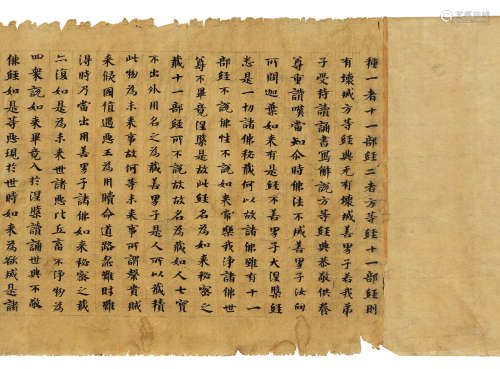 種一者十一部經二者方等經十一部經則
有壞城方等經典无有壞城善男子若我弟
子受持讀誦書寫解說方等經典恭敬供養
尊重讃嘆當知尒時佛法不滅善男子汝向
所問迦葉如來有是經不善男子大涅槃經
悉是一切諸佛秘藏何以故諸佛雖有十一
部經不說佛性不說如來常樂我淨諸佛世
尊不畢竟涅槃是故此經名為如來秘密之
藏十一部經所不說故故名為藏如人七寶
不出外用名之為藏善男子是人所以藏積
此物為未來事故何等未來事所謂榖貴賊
來侵國值遇惡王為用贖命道路𭣣難財難
得時乃當出用善男子諸佛如來秘密之藏
亦復如是為未來世諸惡比丘畜不淨物為
四衆說如來畢竟入於涅槃讀誦世典不敬
佛經如是等惡現於世時如來為欲滅是諸